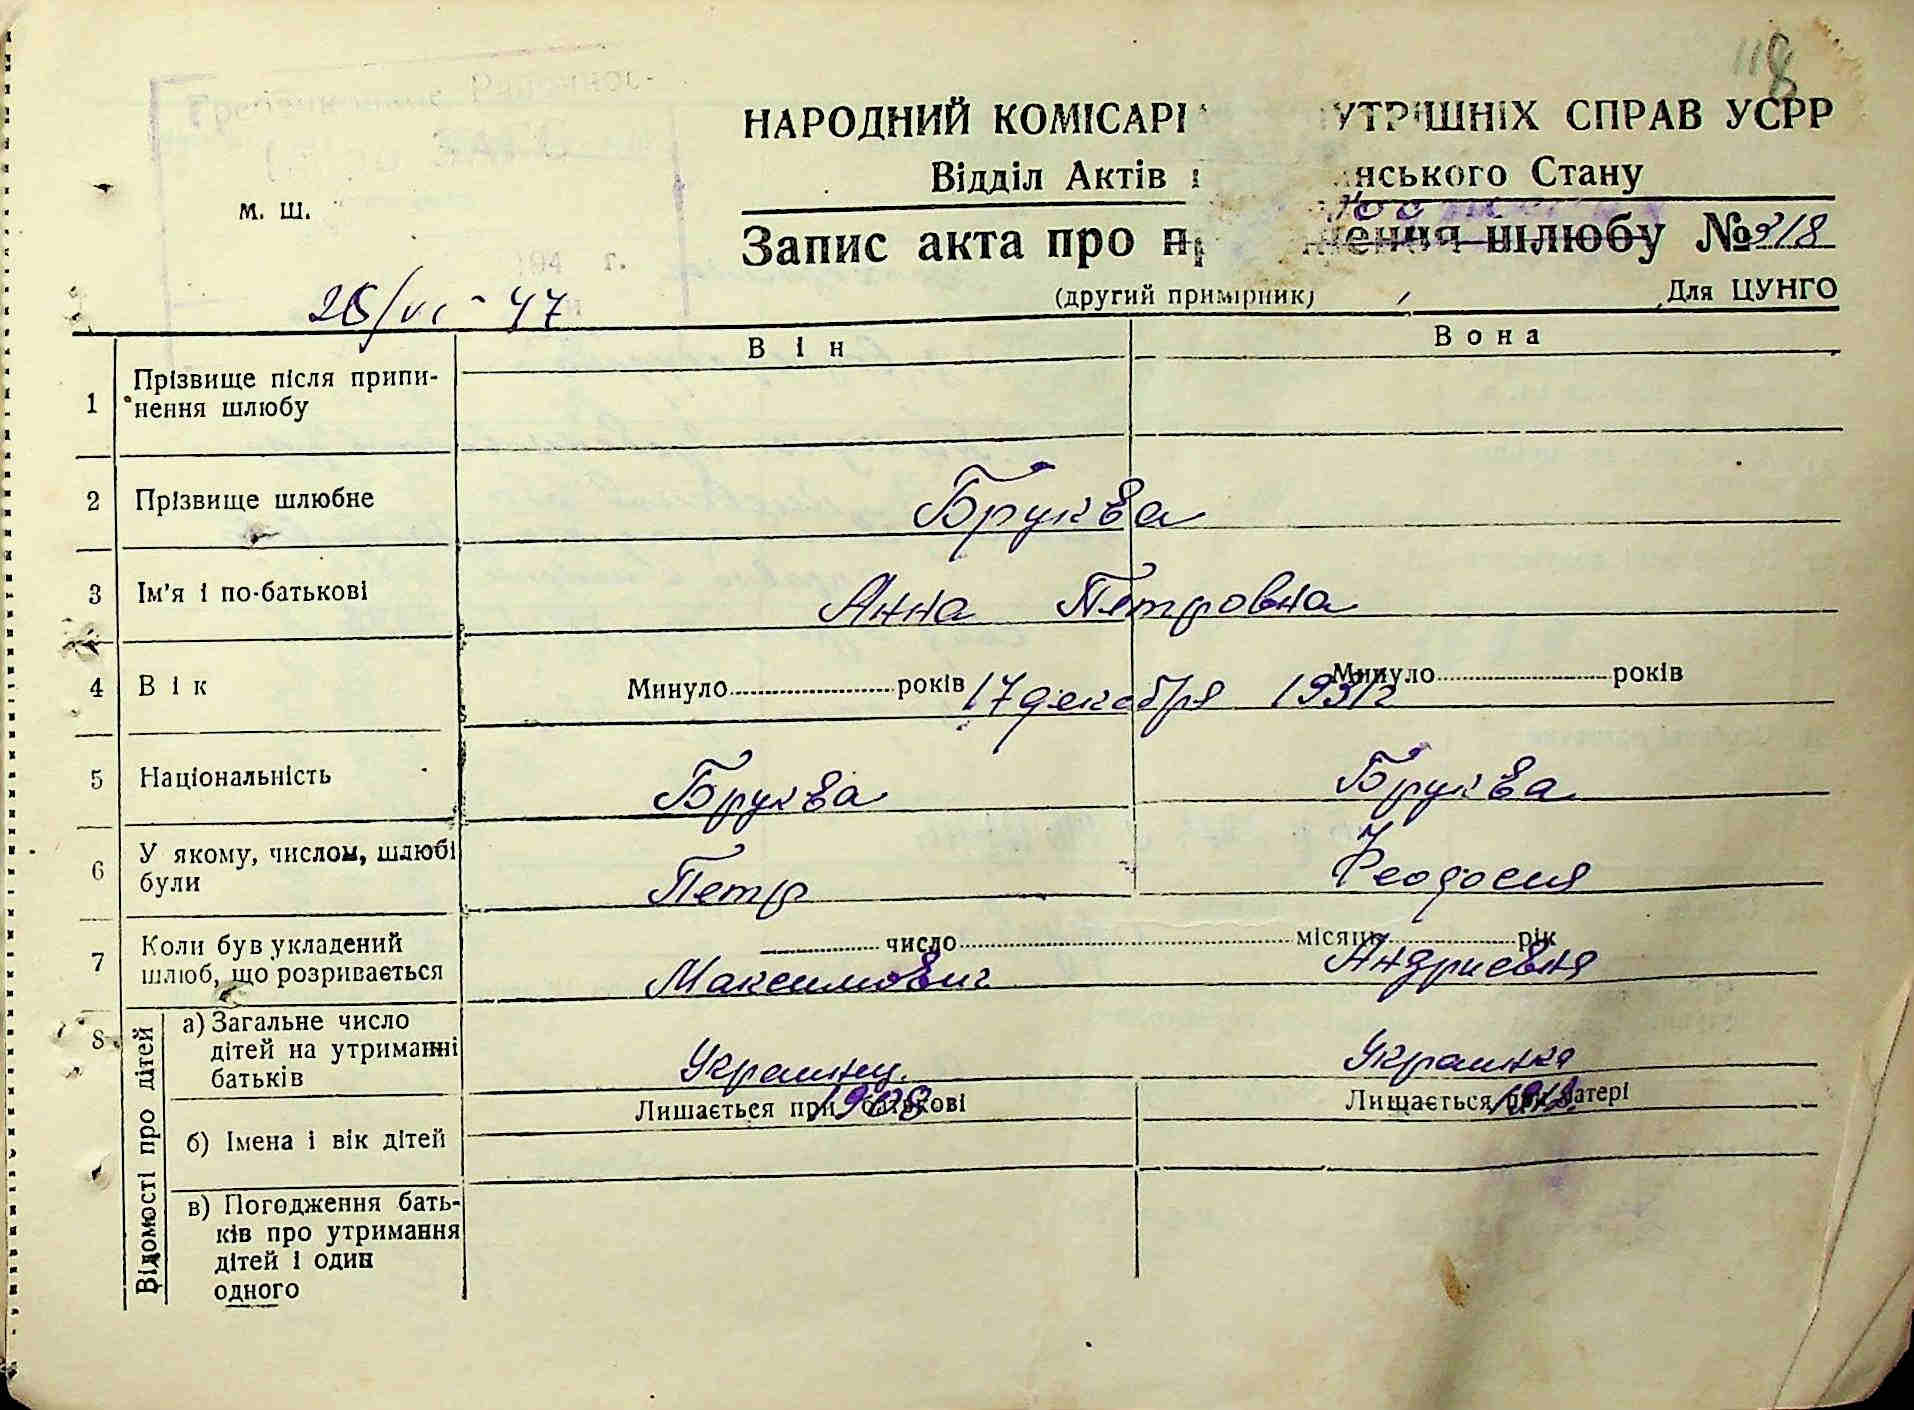 118
НАРОДНИЙ КОМІСАРІ УТРІШНІХ СПРАВ УСРР
Відділ Актів нського Стану
м. ш.
Запис акта про пр ження шлюбу № 318
194 г.
(другий примірник) Для ЦУНГО
26/VI - 47
Він Вона
1 Прізвище після припи-
нення шлюбу
2 Прізвище шлюбне Бруква
3 Ім'я і по-батькові Анна Петровна
4 Вік Минуло років 17 декабря 1931 г Минуло років
5 Національність Бруква Бруква
6 У якому, числом, шлюбі
були Петр Феодосия
7 Коли був укладений число місяць рік
шлюб, що розривається Максимович Андриевна
8 Відомості про дітей
а) Загальне число
дітей на утриманні
батьків Украинец Украинка
Лишається при батькові 1908 Лищається при матері
б) Імена і вік дітей
в) Погодження бать-
ків про утримання
дітей і один
одного